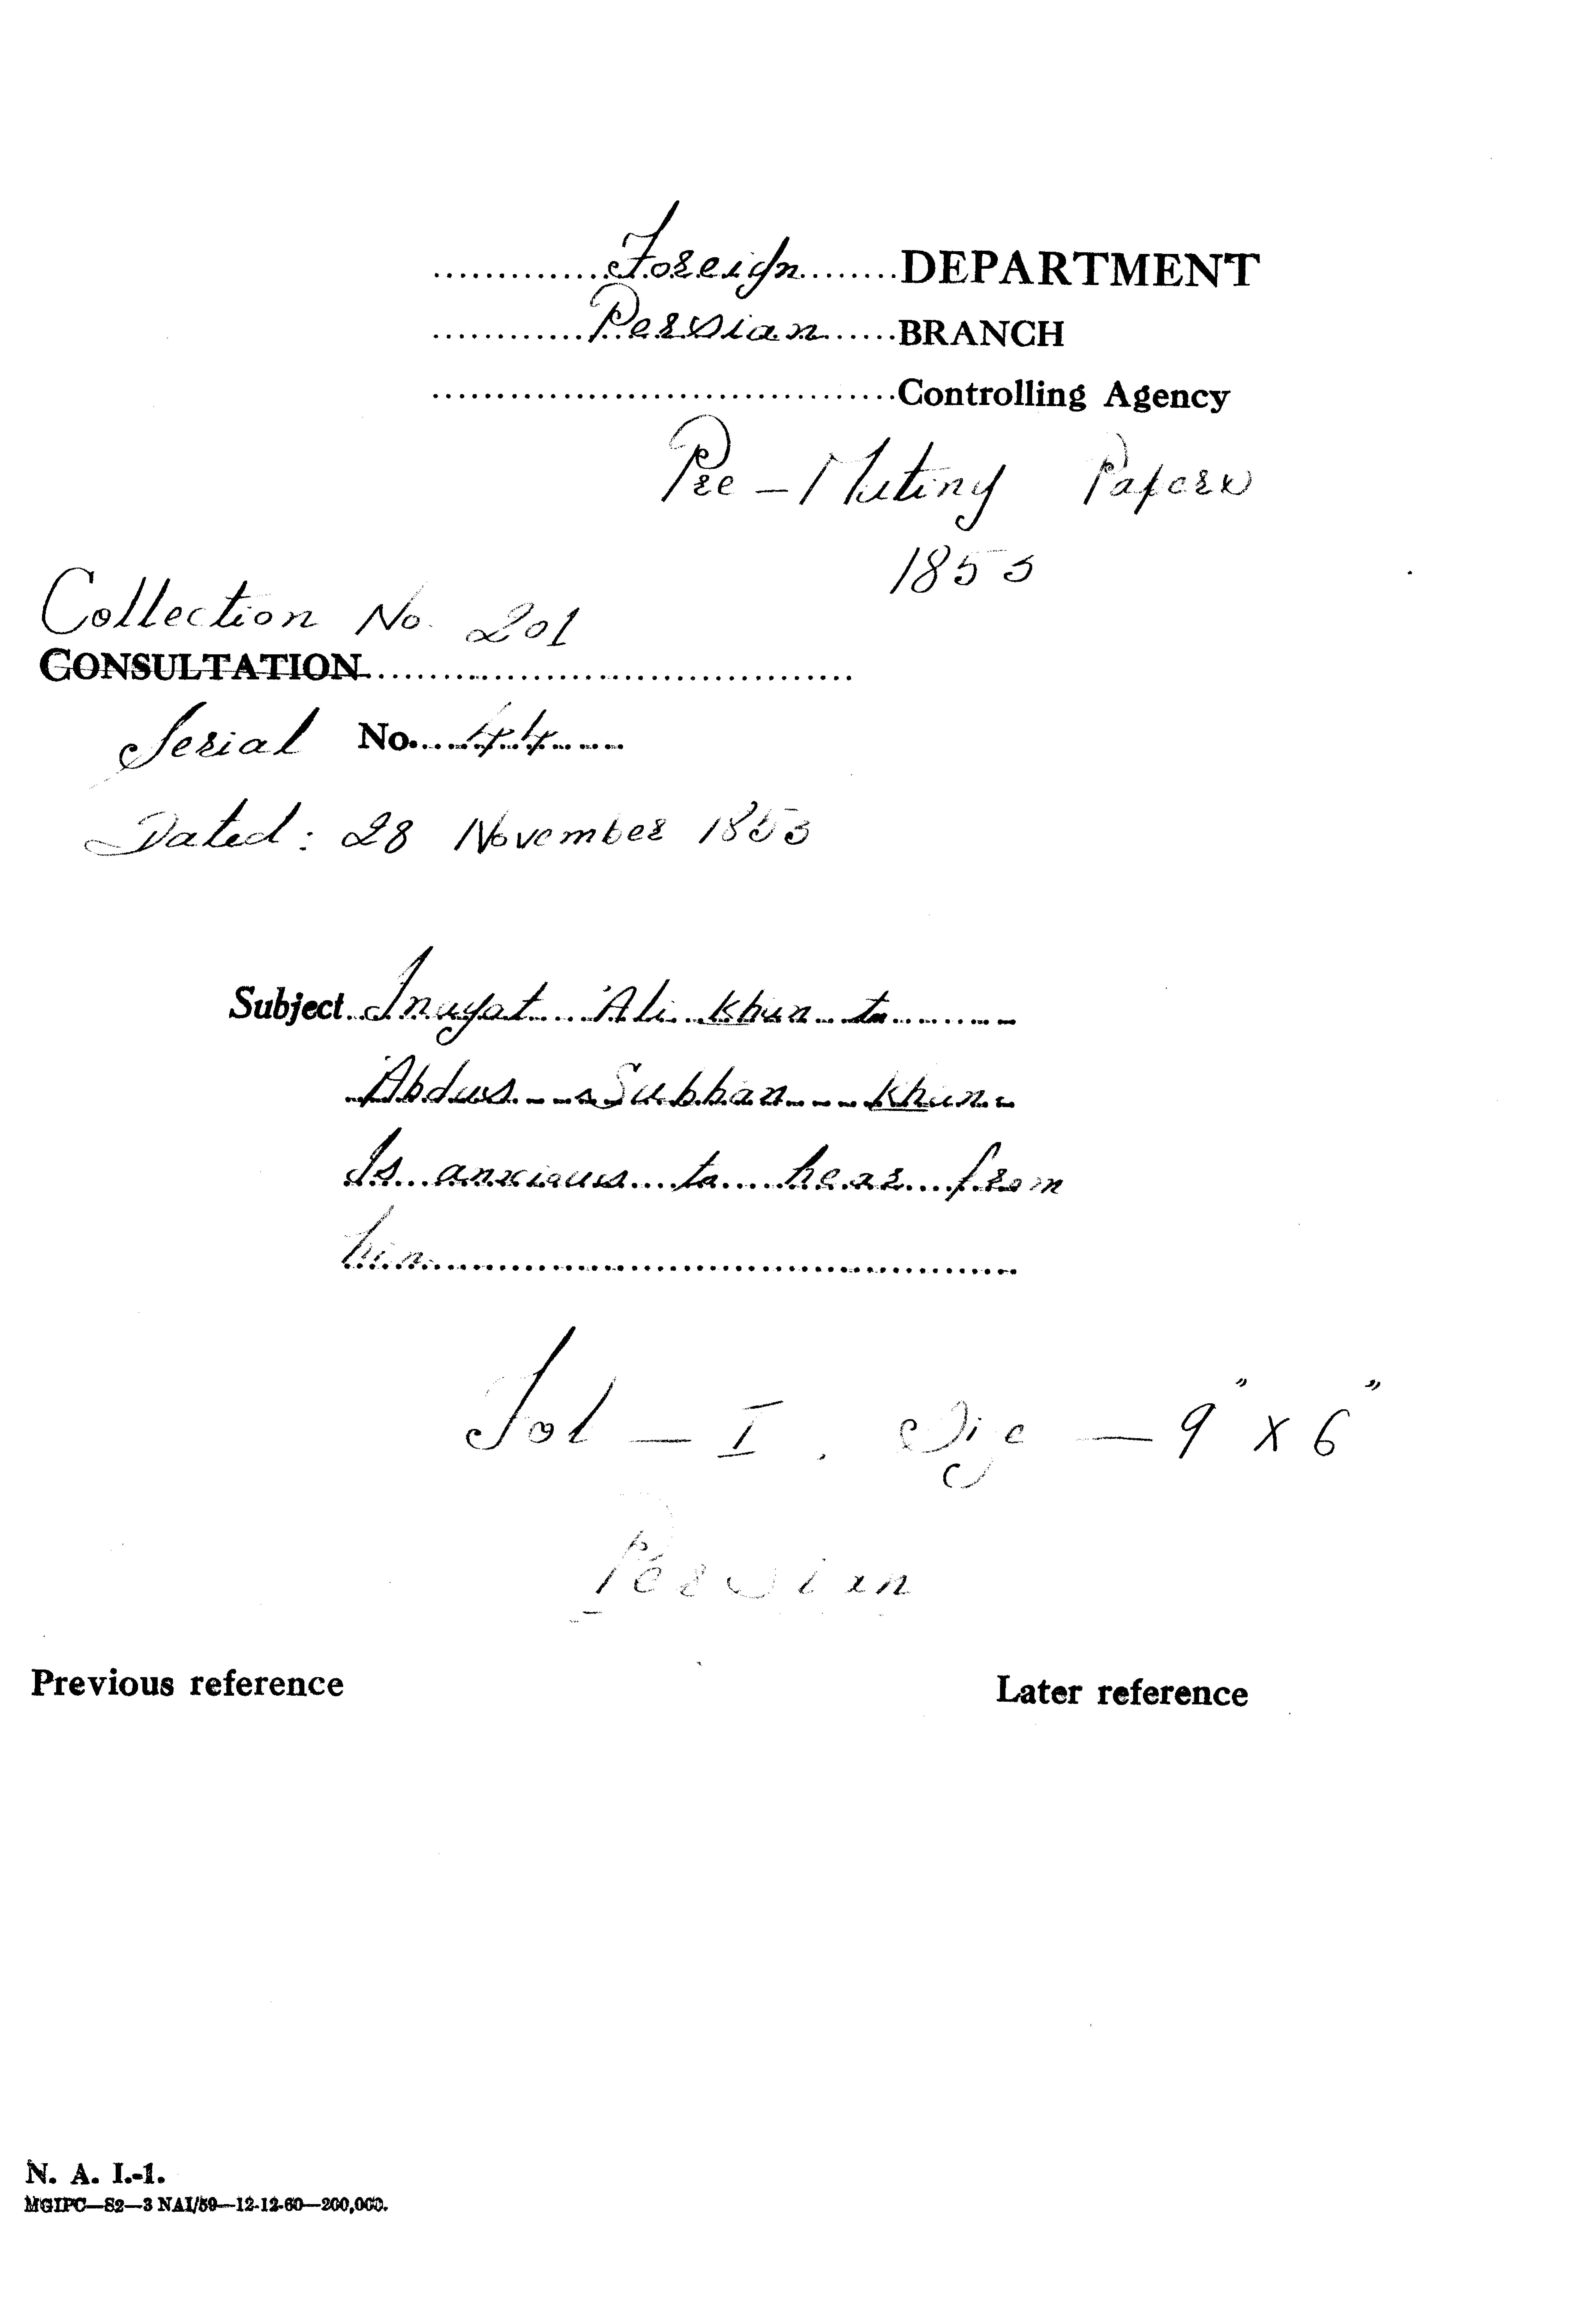 Foreign DEPARTMENT
Persian BRANCH
Controlling Agency
Pre-Mutiny Papers
1853
Collection No. 201
CONSULTATION
Serial No. 44
Dated: 28 November 1853
Subject Inayat 'Ali Khan to
'Abdus Subhan Khan.
Is anxious to hear from
him.
Fol - I. Size - 9" x 6"
Persian
Previous reference Later reference
N. A. I.-1.
MGIPC—S2—3 NAI/59—12-12-60—200,000.